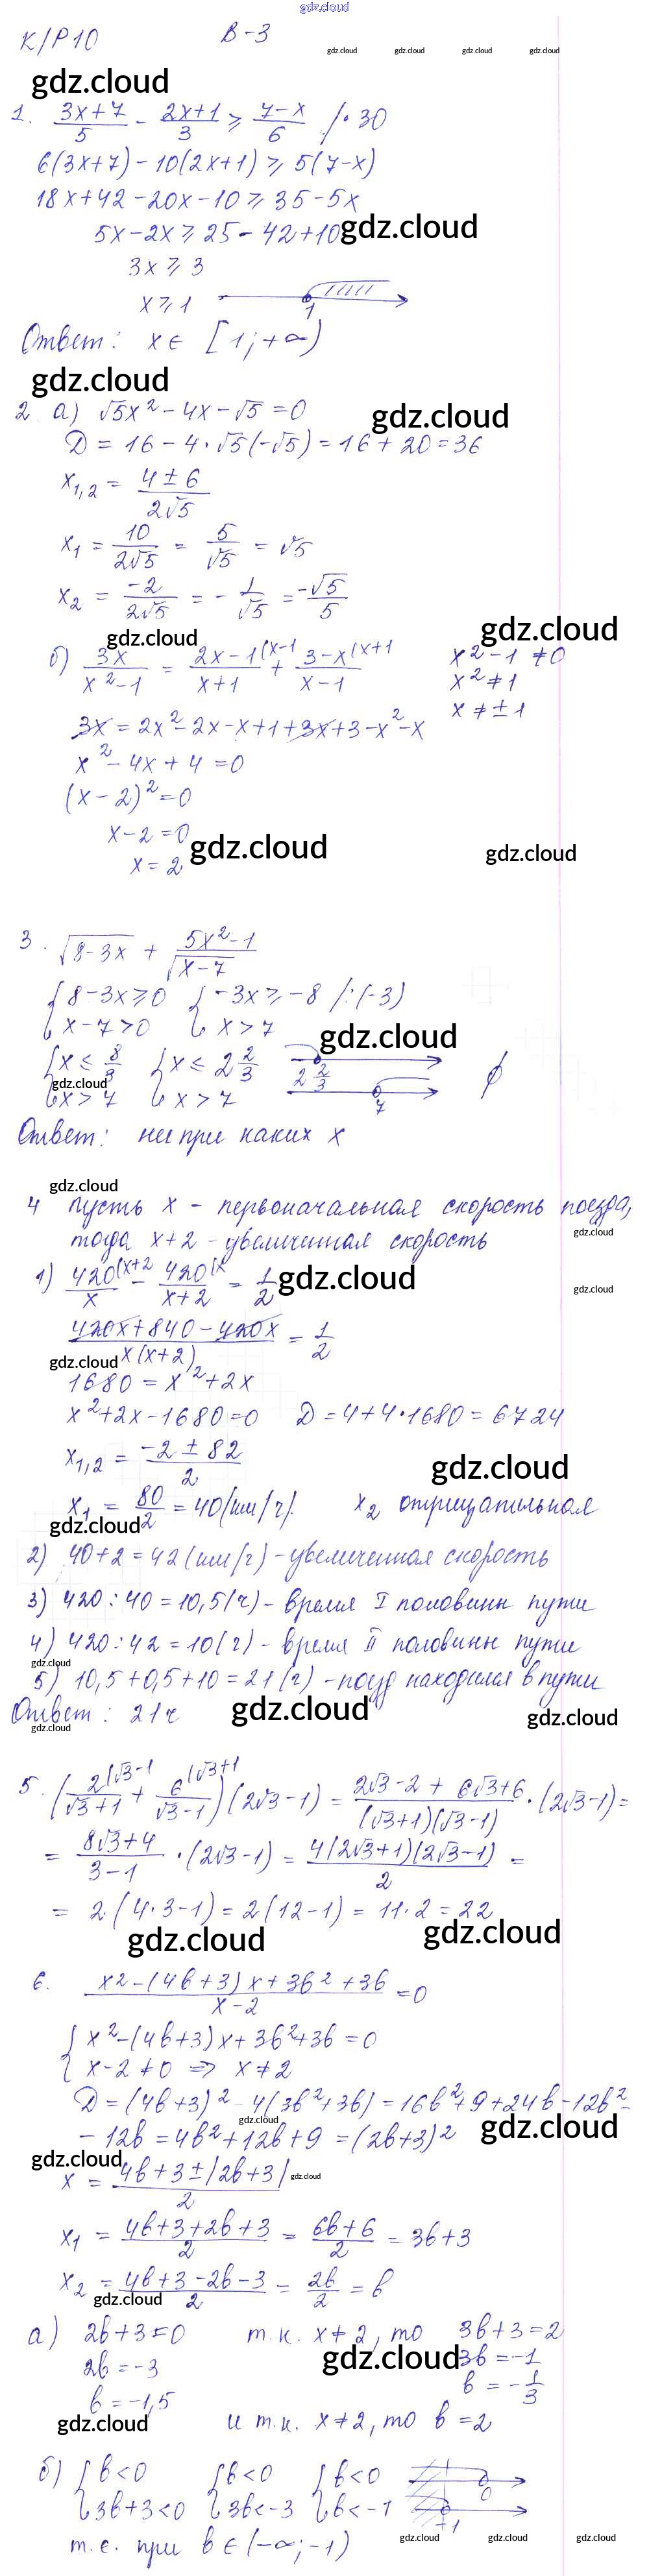 gdz.cloud
К/Р10 В-3
gdz.cloud gdz.cloud gdz.cloud gdz.cloud
gdz.cloud
1. (3x+7)/5 - (2x+1)/3 ⩾ (7-x)/6 /·30
6(3x+7) - 10(2x+1) ⩾ 5(7-x)
18x+42-20x-10 ⩾ 35-5x
5x-2x ⩾ 25-42+10
gdz.cloud
3x ⩾ 3
x ⩾ 1 1
Ответ: x ∈ [1; +∞)
gdz.cloud
2. а) √5x² - 4x - √5 = 0
gdz.cloud
Д = 16 - 4·√5(-√5) = 16 + 20 = 36
x₁,₂ = (4 ± 6)/(2√5)
x₁ = 10/(2√5) = 5/√5 = √5
x₂ = -2/(2√5) = -1/√5 = -√5/5
gdz.cloud gdz.cloud
б) 3x/(x²-1) = (2x-1)/(x+1) (x-1 + (3-x)/(x-1) (x+1 x²-1 ≠ 0
x² ≠ 1
x ≠ ±1
3x = 2x²-2x-x+1+3x+3-x²-x
x²-4x+4=0
(x-2)²=0
x-2=0
gdz.cloud gdz.cloud
x=2
3. √(8-3x) + (5x²-1)/√(x-7)
{8-3x⩾0 {-3x⩾-8 /:(-3)
{x-7>0 {x>7
gdz.cloud
{x⩽8/3 {x⩽2 2/3 2 2/3 ∅
gdz.cloud
{x>7 {x>7 7
Ответ: ни при каких x
gdz.cloud
4 Пусть x - первоначальная скорость поезда,
gdz.cloud
тогда x+2 - увеличенная скорость
1) 420/x (x+2 - 420/(x+2) (x = 1/2
gdz.cloud gdz.cloud
(420x+840-420x)/(x(x+2)) = 1/2
gdz.cloud
1680 = x²+2x
x²+2x-1680=0 Д=4+4·1680=6724
x₁,₂ = (-2 ± 82)/2
gdz.cloud
x₁ = 80/2 = 40(км/ч). x₂ отрицательная
gdz.cloud
2) 40+2=42(км/ч) - увеличенная скорость
3) 420:40=10,5(ч) - время I половины пути
4) 420:42=10(ч) - время II половины пути
gdz.cloud
5) 10,5+0,5+10=21(ч) - поезд находился в пути
Ответ: 21ч
gdz.cloud gdz.cloud
gdz.cloud
5. (2/(√3+1) (√3-1 + 6/(√3-1) (√3+1)(2√3-1) = (2√3-2+6√3+6)/((√3+1)(√3-1))·(2√3-1)=
= (8√3+4)/(3-1)·(2√3-1) = 4(2√3+1)(2√3-1)/2 =
= 2·(4·3-1)=2(12-1)=11·2=22
gdz.cloud gdz.cloud
6. (x²-(4b+3)x+3b²+3b)/(x-2) = 0
{x²-(4b+3)x+3b²+3b=0
{x-2≠0 ⇒ x≠2
Д=(4b+3)²-4(3b²+3b)=16b²+9+24b-12b²-
gdz.cloud gdz.cloud
-12b=4b²+12b+9=(2b+3)²
gdz.cloud
x = (4b+3±|2b+3|)/2
gdz.cloud
x₁ = (4b+3+2b+3)/2 = (6b+6)/2 = 3b+3
x₂ = (4b+3-2b-3)/2 = 2b/2 = b
gdz.cloud
а) 2b+3=0 т.к. x≠2, то 3b+3=2
gdz.cloud
2b=-3 3b=-1
b=-1,5 b=-1/3
gdz.cloud
и т.к. x≠2, то b=2
б) {b<0 {b<0 {b<0 0
{3b+3<0 {3b<-3 {b<-1 -1
т.е. при b∈(-∞;-1)
gdz.cloud gdz.cloud gdz.cloud